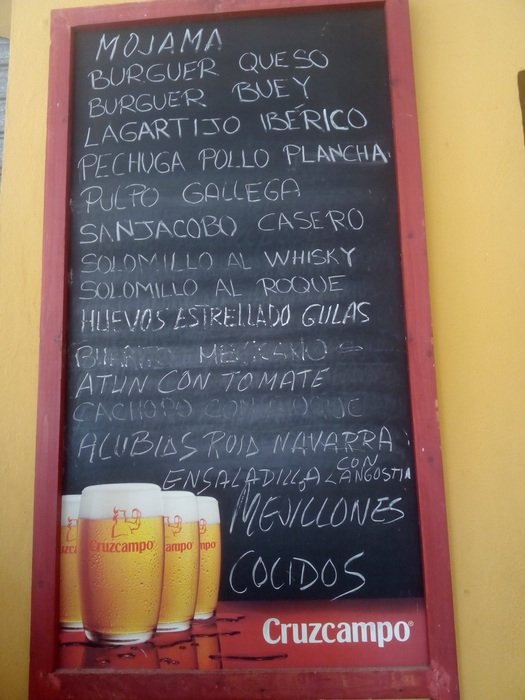 MOJAMA
BURGUER QUESO
BURGUER BUEY
LAGARTIJO IBÉRICO
PECHUGA POLLO PLANCHA.
PULPO GALLEGA
SANJACOBO CASERO
SOLOMILLO AL WHISKY
SOLOMILLO AL ROQUE
HUEVOS ESTRELLADO GULAS
MEXICANO
ATUN CON TOMATE
CACHOPO CON ROQUE
ALUBIAS ROJA NAVARRA
ENSALADILLA CON LANGOSTIN
MEJILLONES
COCIDOS
Cruzcampo
ampo
mpo
Cruzcampo